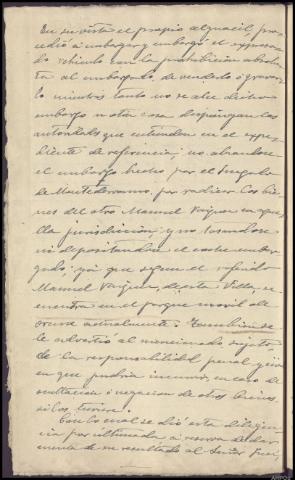 En su vista el propio alguacil, pro-
cedió a embargar y embargó el expresa-
do vehiculo con la prohibición absolu-
ta al embargado, de venderlo o gravar-
lo mientras tanto no se alce dicho
embargo u otra cosa dispongan las
autoridades que entienden en el expe-
diente de referencia; no
el embargo hecho por el Juzgado
de Montederramo, por radicar los bie-
nes del otro Manuel en aque-
lla jurisdicción; y no tasandose
ni depositandose el coche embar-
gado, ya que segun el referido
Manuel de esta Villa, se
encuentra en el parque movil de
Orense actualmente. Tambien se
le advertió al mencionado sujeto
de la responsabilidad penal
en que podria incurrir, en caso de
ocultacion o negacion de otros bienes,
si los tuviere.
Con lo cual se dió esta diligen-
cia por ultimada a reserva de dar
cuenta de su resultado al Señor Juez,